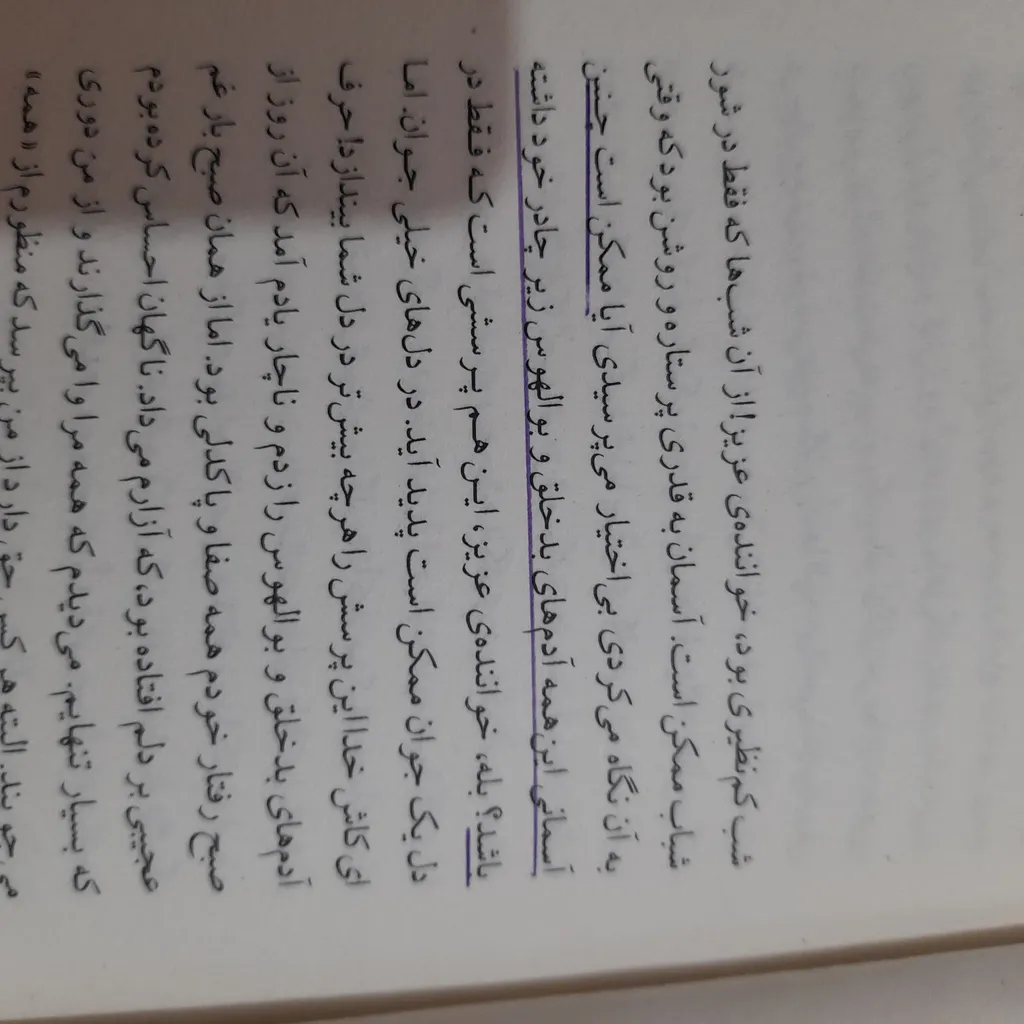 شب کم‌نظیری بود، خواننده‌ی عزیز! از آن شب‌ها که فقط در شور
شباب ممکن است. آسمان به قدری پر ستاره و روشن بود که وقتی
به آن نگاه می‌کردی بی‌اختیار می‌پرسیدی آیا ممکن است چنین
آسمانی این همه آدم‌های بدخلق و بوالهوس زیر چادر خود داشته
باشد؟ بله، خواننده‌ی عزیز، این هم پرسشی است که فقط در
دل یک جوان ممکن است پدید آید. در دل‌های خیلی جوان. اما
ای کاش خدا این پرسش را هرچه بیش‌تر در دل شما بیندازد! حرف
آدم‌های بدخلق و بوالهوس را زدم و ناچار یادم آمد که آن روز از
صبح رفتار خودم همه صفا و پاکدلی بود. اما از همان صبح بار غم
عجیبی بر دلم افتاده بود، که آزارم می‌داد. ناگهان احساس کرده بودم
که بسیار تنهایم. می‌دیدم که همه مرا وامی‌گذارند و از من دوری
می‌جویند. البته هر کس حق دارد از من بپرسد که منظورم از «همه»